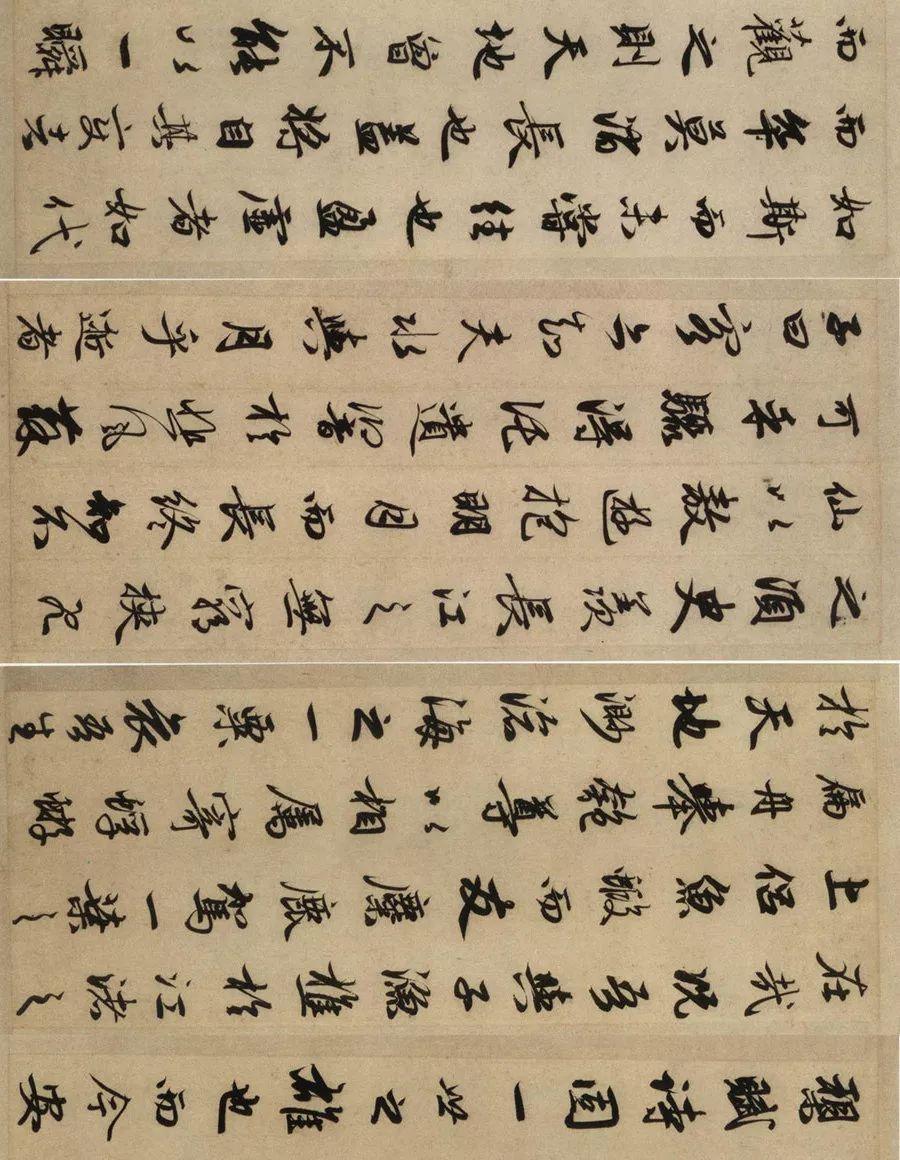 槊賦詩固一世之雄也而今安
在哉況吾與子漁樵於江渚之
上侶魚蝦而友麋鹿駕一葉之
扁舟舉匏尊以相屬寄蜉蝣
於天地渺滄海之一粟哀吾生
之須臾羨長江之無窮挾飛
仙以敖遊抱明月而長終知不
可乎驟得託遺響於悲風蘇
子曰客亦知夫水與月乎逝者
如斯而未嘗往也盈虛者如代
而卒莫消長也蓋將自其變者
而觀之則天地曾不能以一瞬